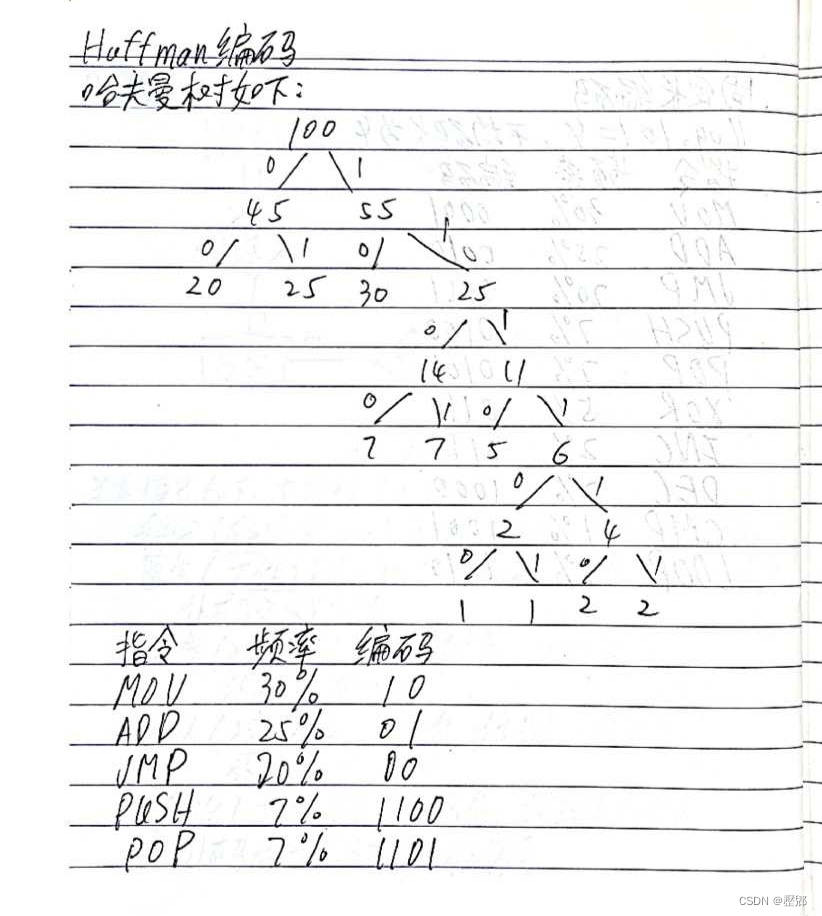 Huffman编码
哈夫曼树如下:
100
0 1
45 55
0 1 0 1
20 25 30 25
0 1
14 11
0 1 0 1
7 7 5 6
0 1
2 4
0 1 0 1
1 1 2 2
指令 频率 编码
MOV 30% 10
ADD 25% 01
JMP 20% 00
PUSH 7% 1100
POP 7% 1101
CSDN @壓郷